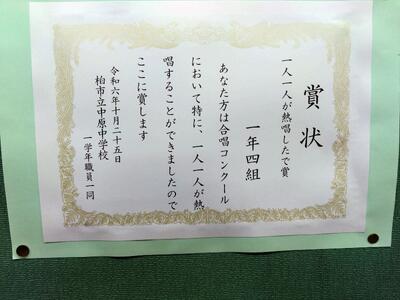 賞状
一人一人が熱唱したで賞
一年四組
あなた方は合唱コンクール
において特に、一人一人が熱
唱することができましたので
ここに賞します
令和六年十月二十五日
柏市立中原中学校
一学年職員一同